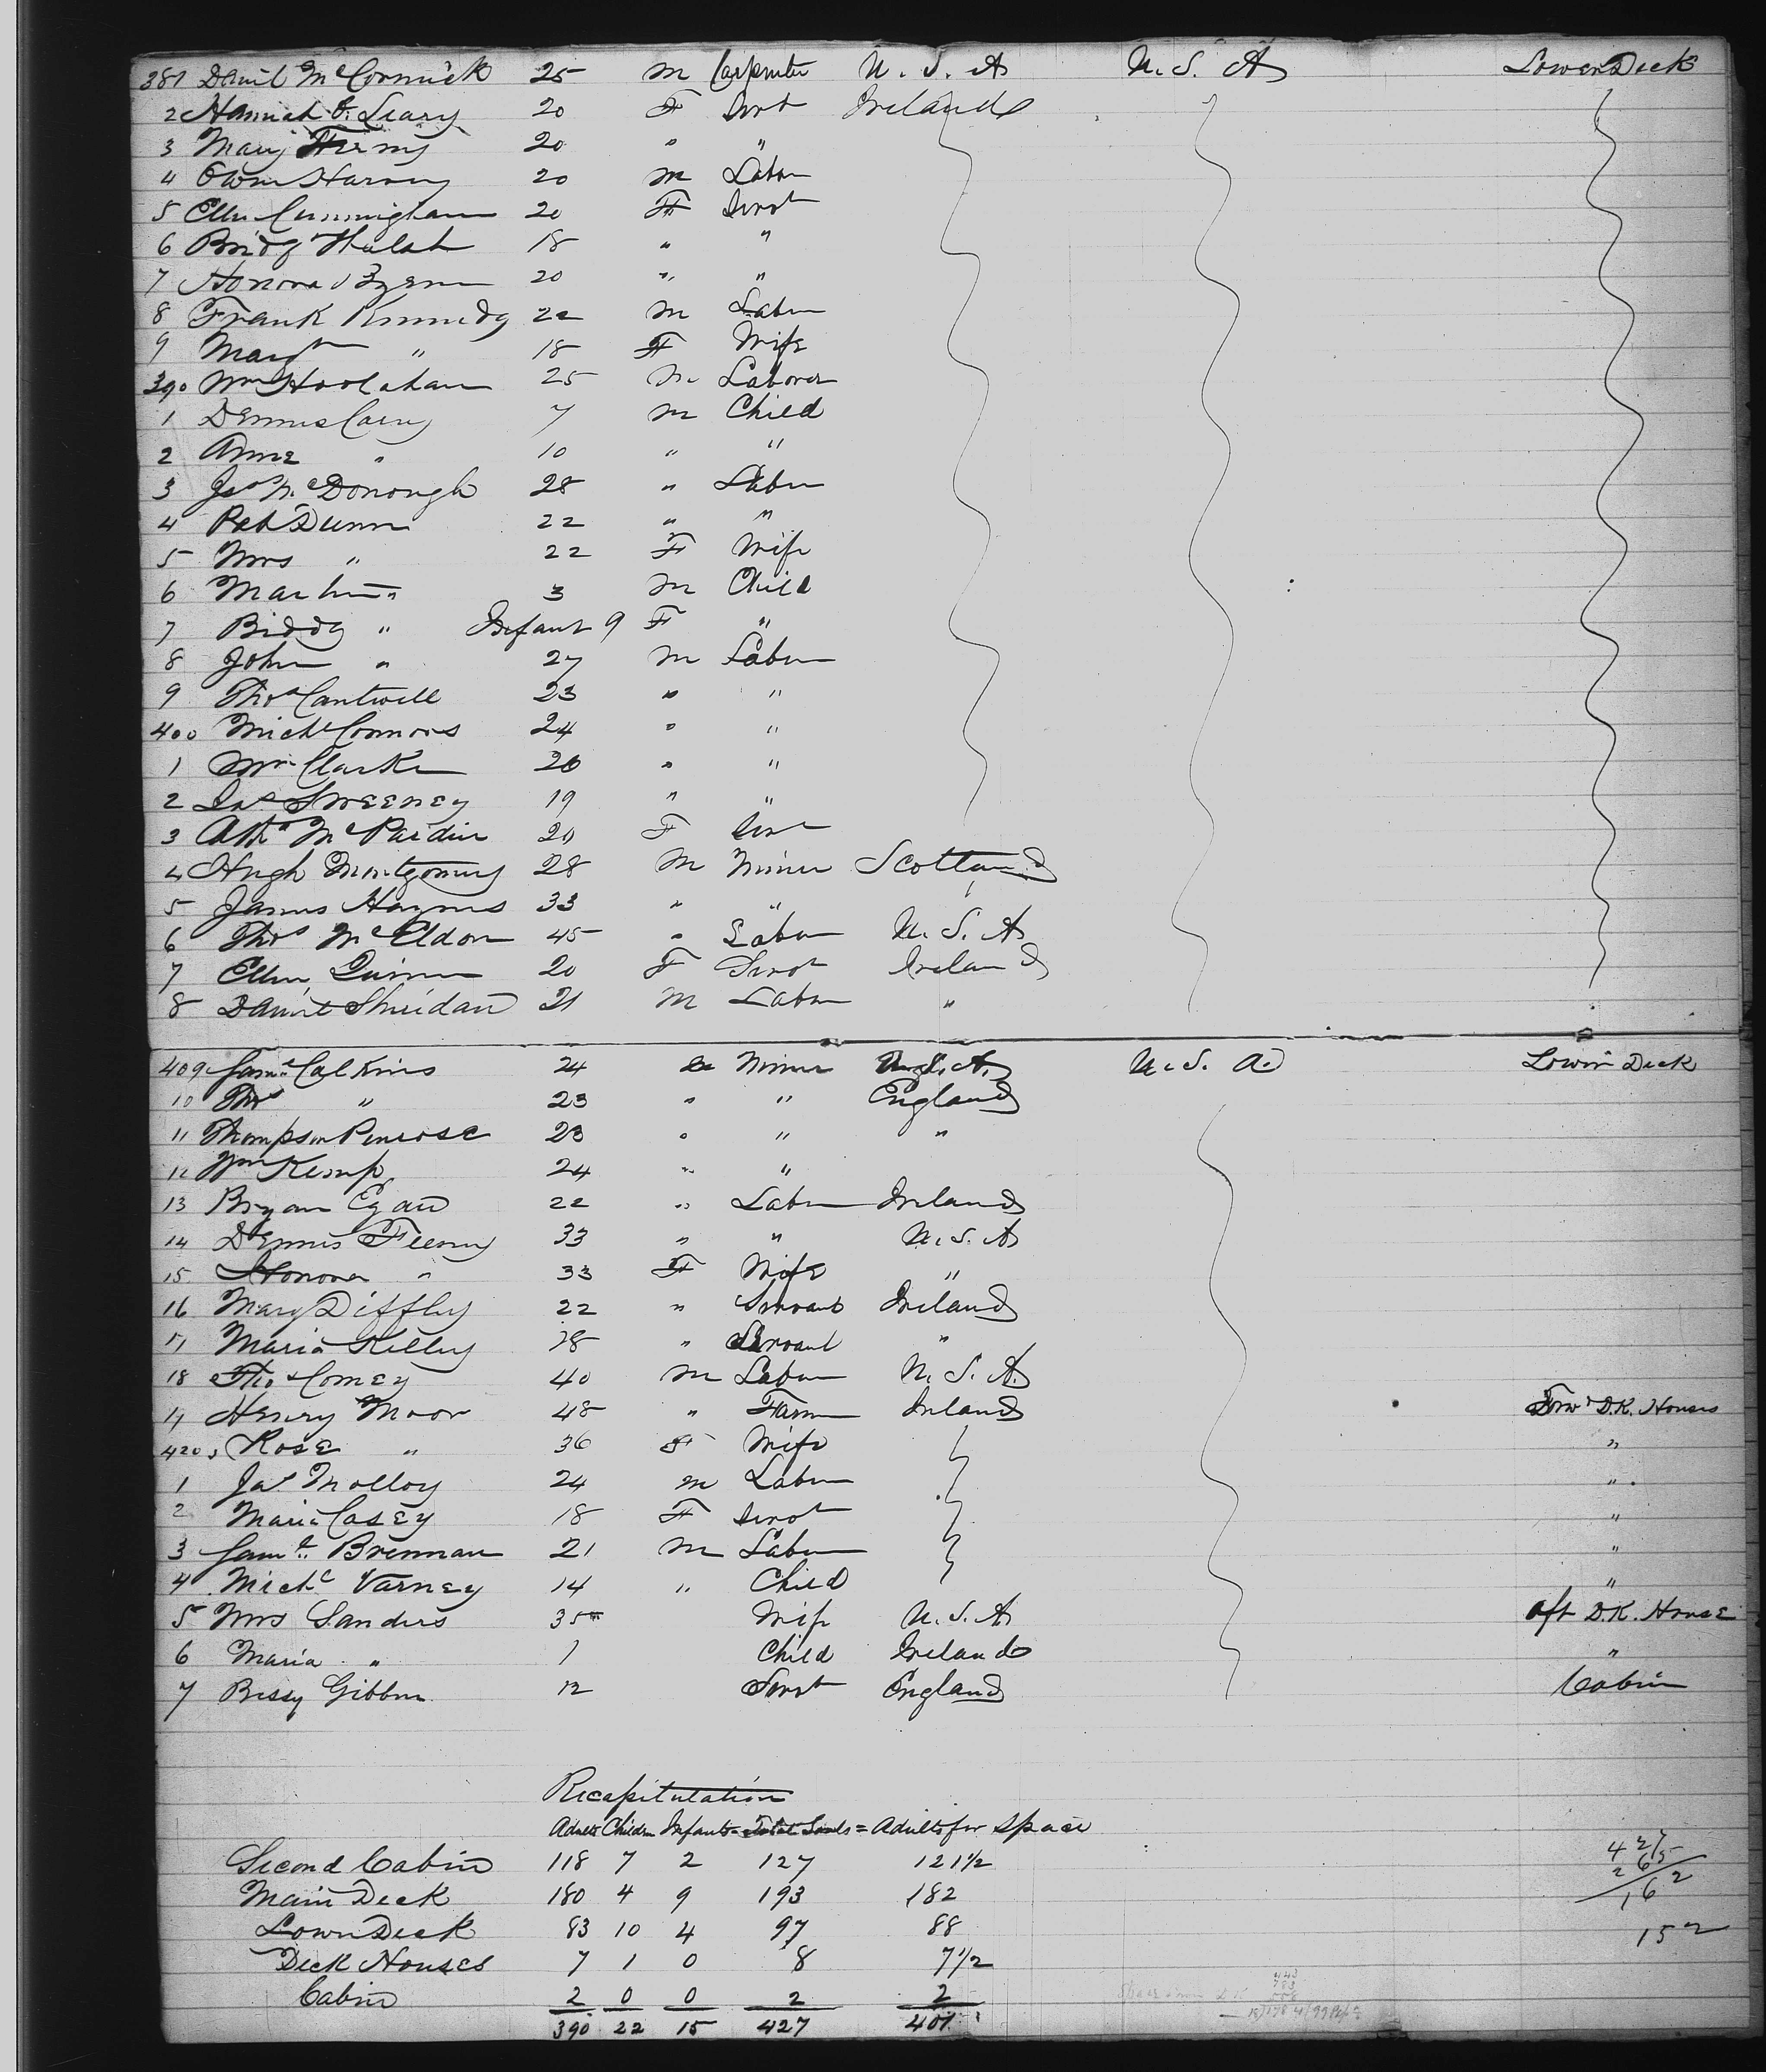 381 Daniel McCormick 25 M Carpenter U.S.A U.S.A Lower Deck
2 Hannah O. Leary 20 F Servt Ireland
3 Mary 20 " "
4 Owen Harvey 20 M Labor
5 Ellen Cunningham 20 F Servt
6 Bridgt Walsh 18 " "
7 Honora Byrne 20 " "
8 Frank Kennedy 22 M Labor
9 Margt " 18 F Wife
390 Wm Hoolahan 25 M Laborer
1 Dennis Carey 7 M Child
2 Anne " 10 " "
3 Jas McDonough 28 " Labor
4 Pat Dunn 22 " "
5 Mrs " 22 F Wife
6 Martin " 3 M Child
7 Biddy " Infant 9 F "
8 John " 27 M Labor
9 Thos Cantwell 23 " "
400 Michl Connors 24 " "
1 Wm Clarke 26 " "
2 Jas Sweeney 19 " "
3 Mc 20 F Servt
4 Hugh Montgomery 28 M Miner Scotland
5 James Haynes 33 " "
6 Thos McEldon 45 " Labor U.S.A
7 Ellen Quinn 20 F Servt Ireland
8 Daniel Sheridan 21 M Labor "
409 Saml Calkins 24 M Miner U.S.A. U.S.A. Lower Deck
10 Thos " 23 " " England
11 Thompson Penrose 23 " " "
12 Wm Kemp 24 " "
13 Bryan Egan 22 " Labor Ireland
14 Dennis Feeney 33 " " U.S.A
15 Honora " 33 F Wife "
16 Mary Diffley 22 " Servant Ireland
17 Maria Kelley 18 " Servant "
18 Thos Comey 40 M Labor U.S.A.
19 Henry Moor 48 " Farmer Ireland Forwd D.K. Houses
420 Rose " 36 F Wife "
1 Jas Molloy 24 M Labor "
2 Maria Casey 18 F Servt "
3 Saml Brennan 21 M Labor "
4 Michl Varney 14 " Child "
5 Mrs Sanders 35 Wife U.S.A aft D.K. House
6 Maria " 1 Child Ireland "
7 Bessy Gibbon 12 Servt England Cabin
Recapitulation
Adults Children Infants = Total Souls = Adults for Space
Second Cabin 118 7 2 127 121 1/2
Main Deck 180 4 9 193 182
Lower Deck 83 10 4 97 88
Deck Houses 7 1 0 8 7 1/2
Cabin 2 0 0 2 2
390 22 15 427 401
427
265
162
152